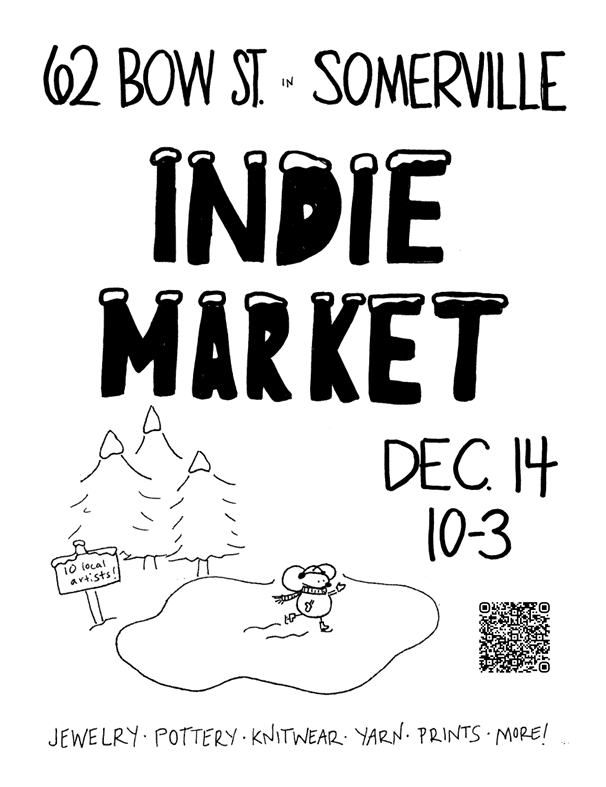 62 BOW ST. IN SOMERVILLE
INDIE
MARKET
DEC. 14
10-3
10 local
artists!
JEWELRY · POTTERY · KNITWEAR · YARN · PRINTS · MORE!